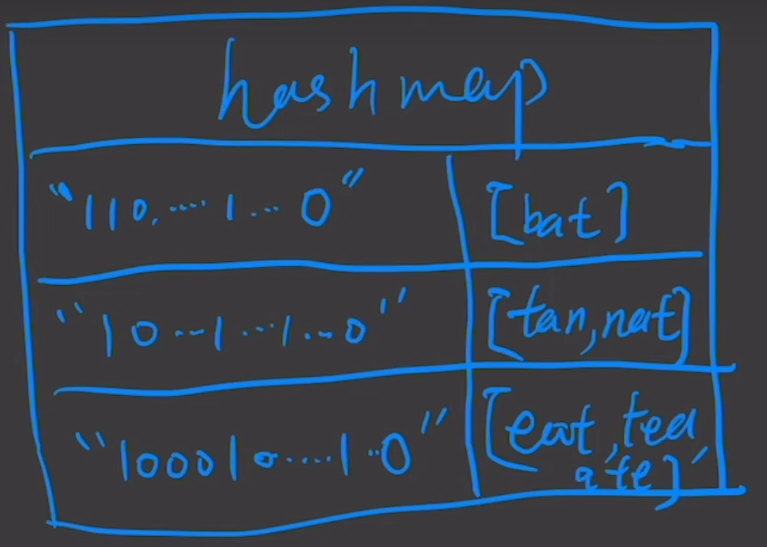 hashmap
"110.....1...0" [bat]
"10...1...1...0" [tan, nat]
"100010....1..0" [eat, tea,
ate]